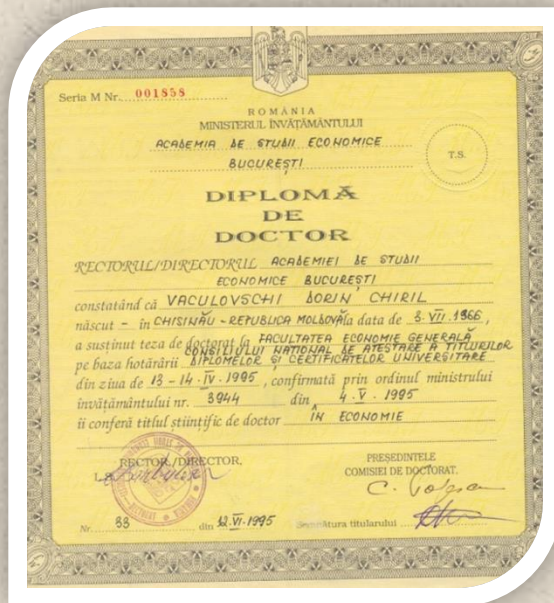 Seria M Nr. 001858
ROMÂNIA
MINISTERUL ÎNVĂȚĂMÂNTULUI
ACADEMIA DE STUDII ECONOMICE
BUCUREȘTI
T.S.
DIPLOMĂ
DE
DOCTOR
RECTORUL/DIRECTORUL ACADEMIEI DE STUDII
ECONOMICE BUCUREȘTI
constatând că VACULOVSCHI DORIN CHIRIL
născut - în CHIȘINĂU - REPUBLICA MOLDOVA la data de 3.VII.1966,
a susținut teza de doctorat la FACULTATEA ECONOMIE GENERALĂ
CONSILIULUI NAȚIONAL DE ATESTARE A TITLURILOR
pe baza hotărârii DIPLOMELOR ȘI CERTIFICATELOR UNIVERSITARE
din ziua de 13-14.IV.1995, confirmată prin ordinul ministrului
învățământului nr. 3944 din 4.V.1995
îi conferă titlul științific de doctor ÎN ECONOMIE
RECTOR/DIRECTOR,
PREȘEDINTELE
COMISIEI DE DOCTORAT.
Nr. 88 din 12.VI.1995 Semnătura titularului